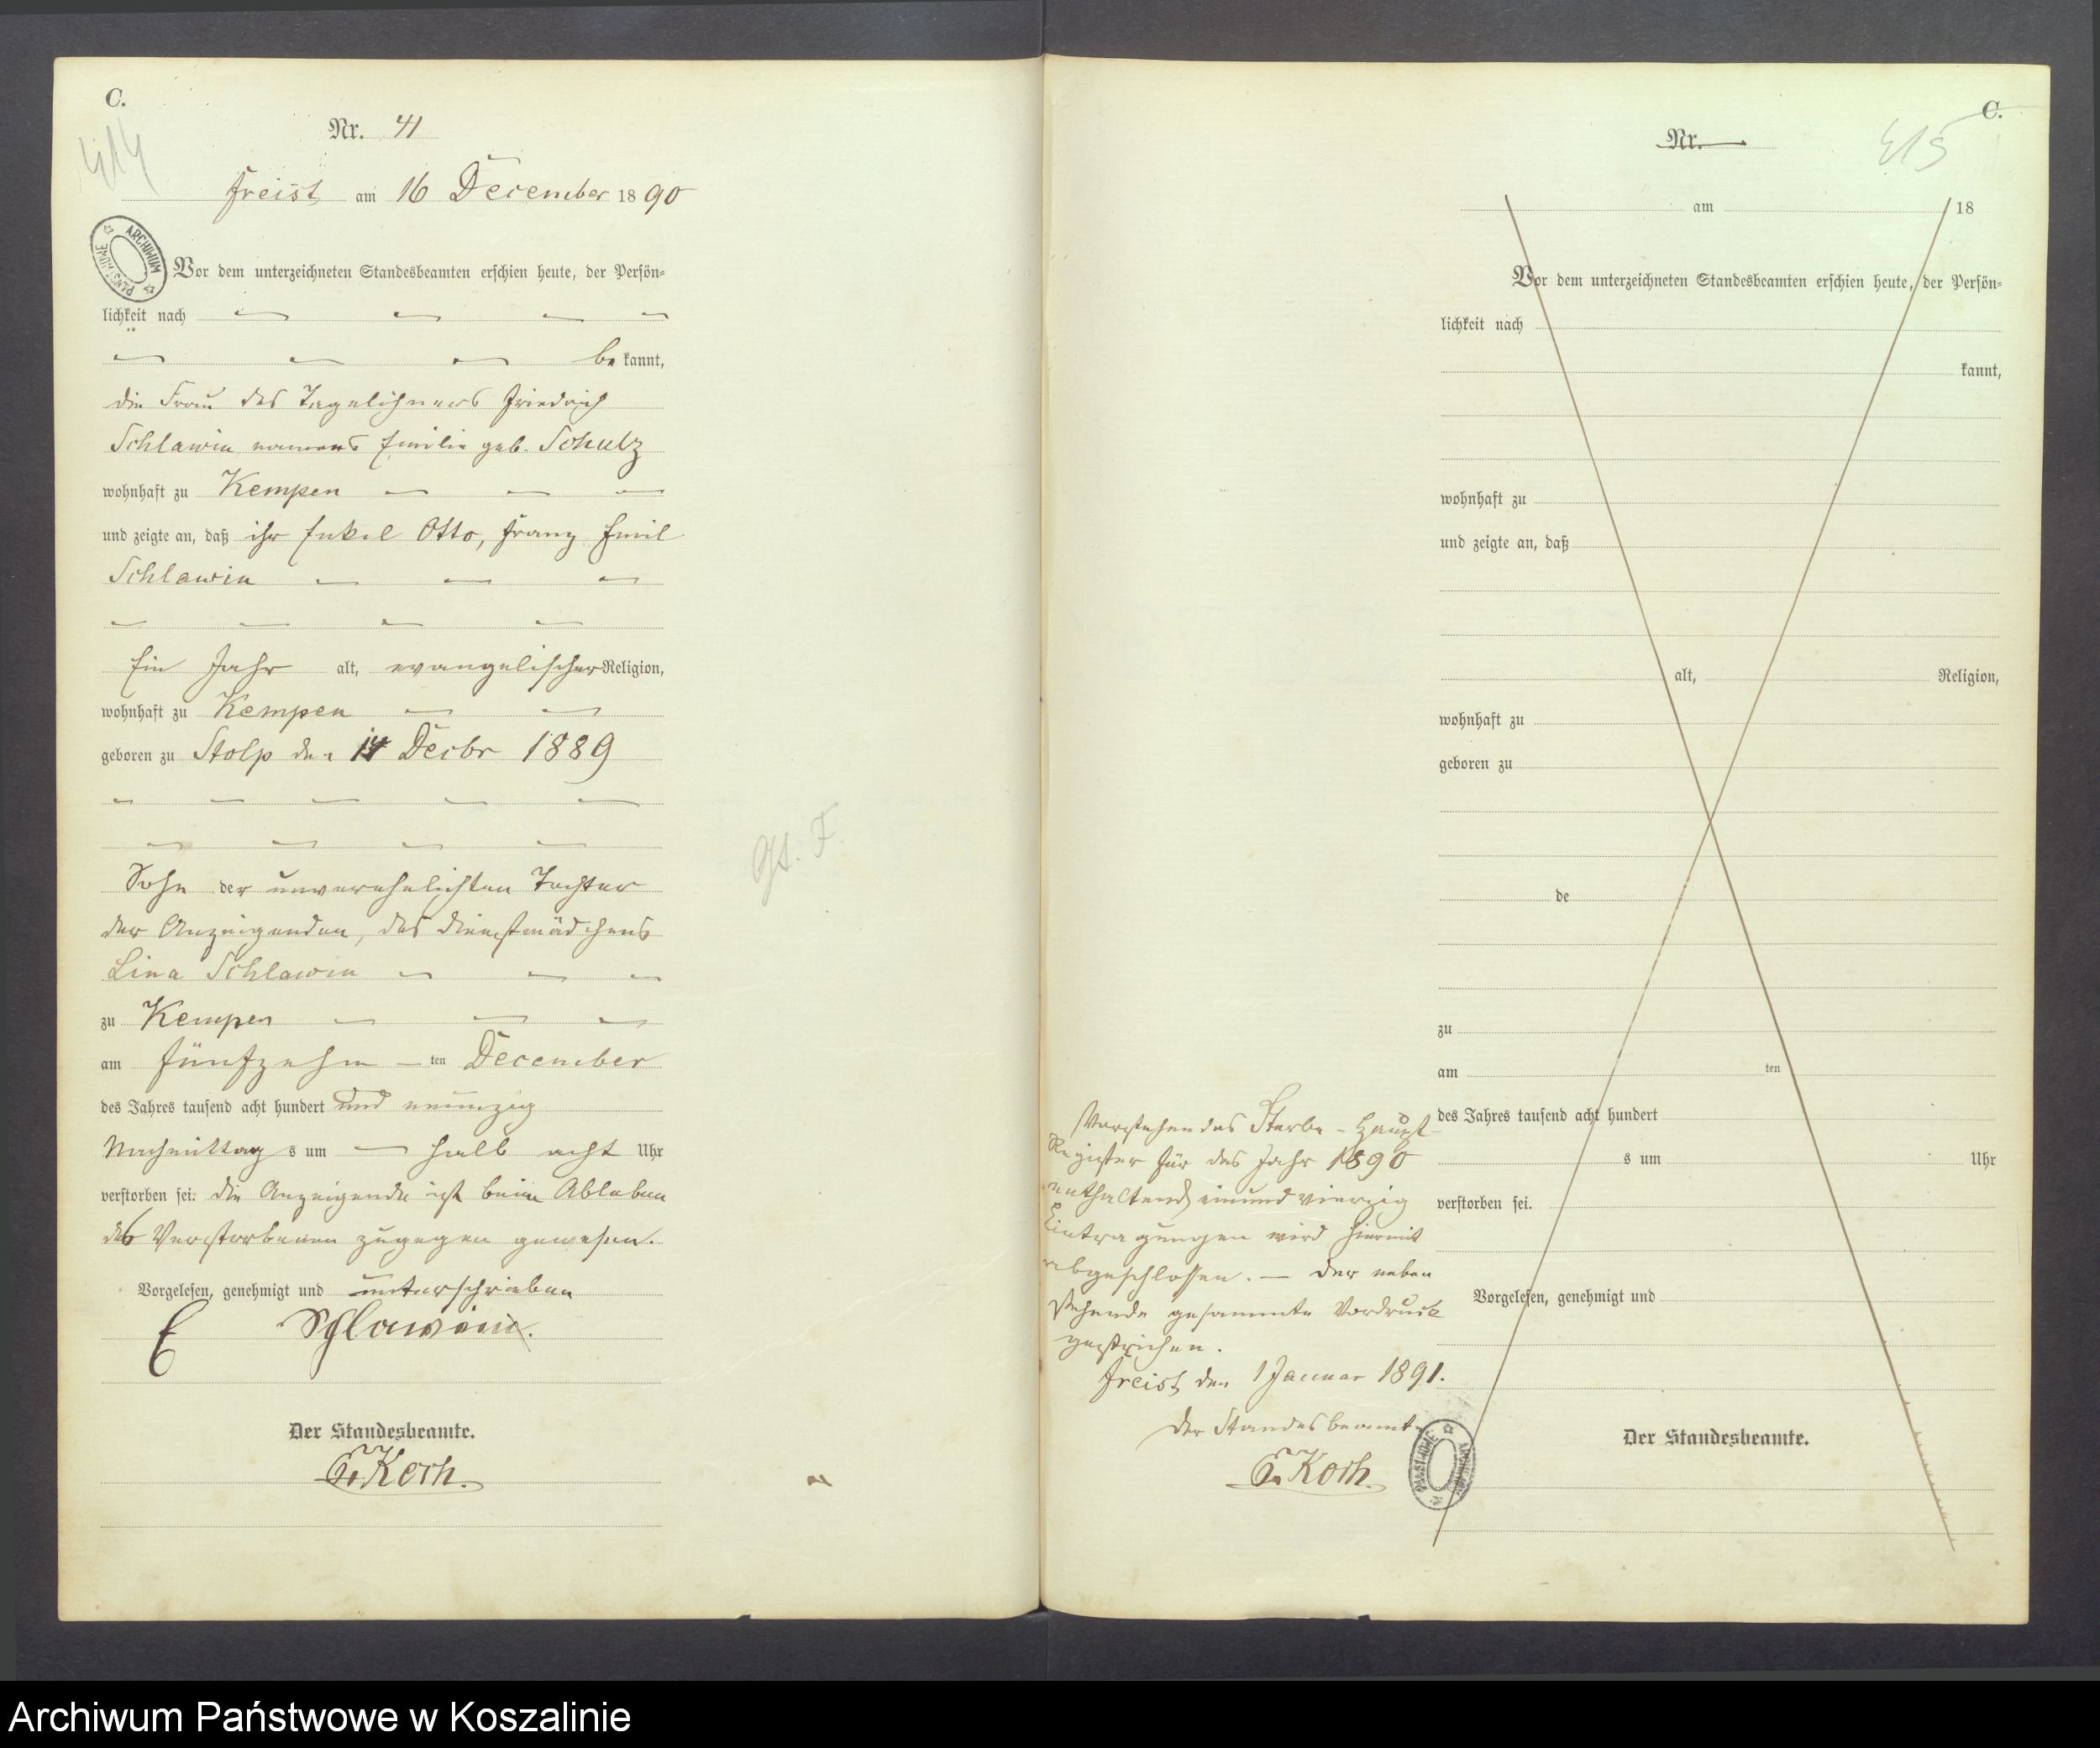 C.
414
Nr. 41
Freist am 16 December 1890
ARCHIWUM PAŃSTWOWE
Vor dem unterzeichneten Standesbeamten erschien heute, der Persön-
lichkeit nach
be kannt,
die Frau des Tagelöhners Friedrich
Schlawin namens Emilie geb. Schulz
wohnhaft zu Kempen
und zeigte an, daß ihr Enkel Otto, Franz Emil
Schlawin
Ein Jahr alt, evangelischer Religion,
wohnhaft zu Kempen
geboren zu Stolp den 14 Decbr 1889
Sohn der unverehelichten Tochter
der Anzeigenden, des Dienstmädchens
Lina Schlawin
zu Kempen
am fünfzehn ten December
des Jahres tausend acht hundert und neunzig
Nachmittag s um halb acht Uhr
verstorben sei. die Anzeigende ist beim Ableben
des Verstorbenen zugegen gewesen.
Vorgelesen, genehmigt und unterschrieben
E Schlawin.
Der Standesbeamte.
Koch.
Gs. F.
C.
415
Nr.
am 18
Vor dem unterzeichneten Standesbeamten erschien heute, der Persön-
lichkeit nach
kannt,
wohnhaft zu
und zeigte an, daß
alt, Religion,
wohnhaft zu
geboren zu
de
zu
am ten
des Jahres tausend acht hundert
s um Uhr
verstorben sei.
Vorgelesen, genehmigt und
Der Standesbeamte.
Vorstehendes Sterbe-Haupt-
Register für das Jahr 1890
enthaltend einundvierzig
Eintragungen wird hiermit
abgeschlossen. — Der neben
stehende gesammte Vordruck
gestrichen.
Freist den 1 Januar 1891.
Der Standesbeamte
Koch.
ARCHIWUM PAŃSTWOWE
Archiwum Państwowe w Koszalinie